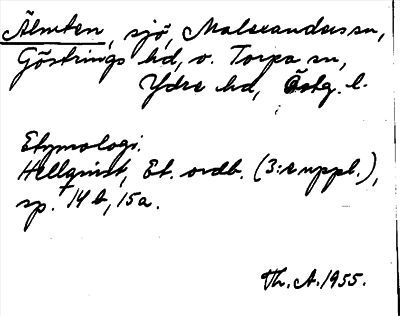 Älmten, sjö, Malexanders sn,
Göstrings hd, o. Torpa sn,
Ydre hd, Östg. l.
Etymologi.
Hellquist, Et. ordb. (3:e uppl.),
sp. 14 b, 15a.
Th. A. 1955.